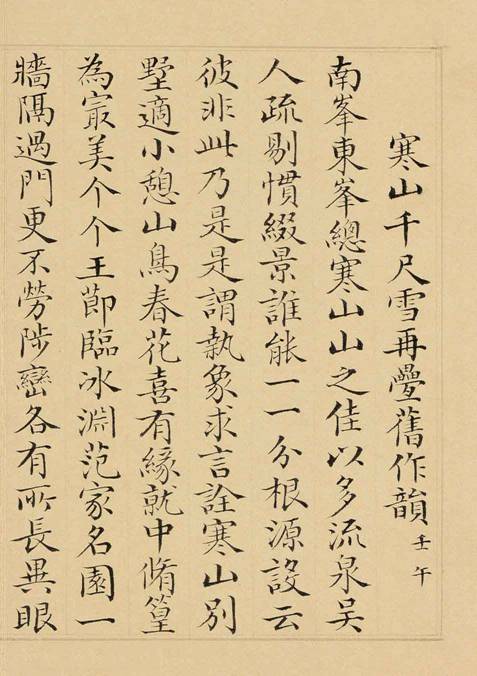 寒山千尺雪再疊舊作韻 壬午
南峯東峯總寒山山之佳以多流泉吴
人疏剔慣綴景誰能一一分根源設云
彼非此乃是是謂執象求言詮寒山別
墅適小憩山鳥春花喜有緣就中脩篁
為冣美个个玉莭臨冰淵范家名園一
牆隔過門更不勞陟巒各有所長異眼